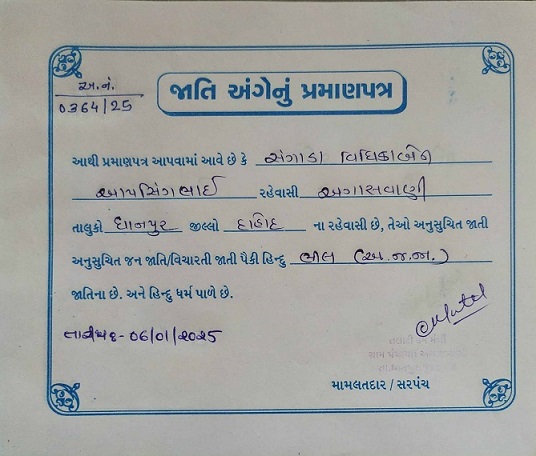 અ.નં.
0364/25
જાતિ અંગેનું પ્રમાણપત્ર
આથી પ્રમાણપત્ર આપવામાં આવે છે કે સંગાડા વિધિકાબેન
આપસિંગભાઈ રહેવાસી અગાસવાણી
તાલુકો ધાનપુર જીલ્લો દાહોદ ના રહેવાસી છે, તેઓ અનુસુચિત જાતી
અનુસુચિત જન જાતિ/વિચારતી જાતી પૈકી હિન્દુ ભીલ (અ.જ.જા.)
જાતિના છે. અને હિન્દુ ધર્મ પાળે છે.
તારીખઃ-06/01/2025
મામલતદાર / સરપંચ